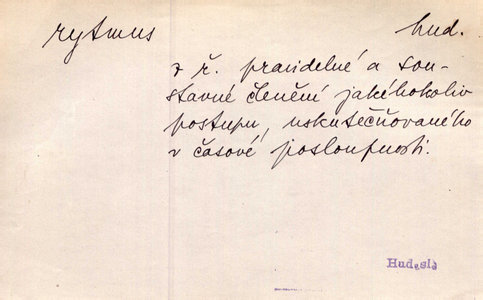 rytmus hud.
z ř. pravidelné a sou-
stavné členění jakéhokoliv
postupu, uskutečňovaného
v časové posloupnosti.
Hud.slα